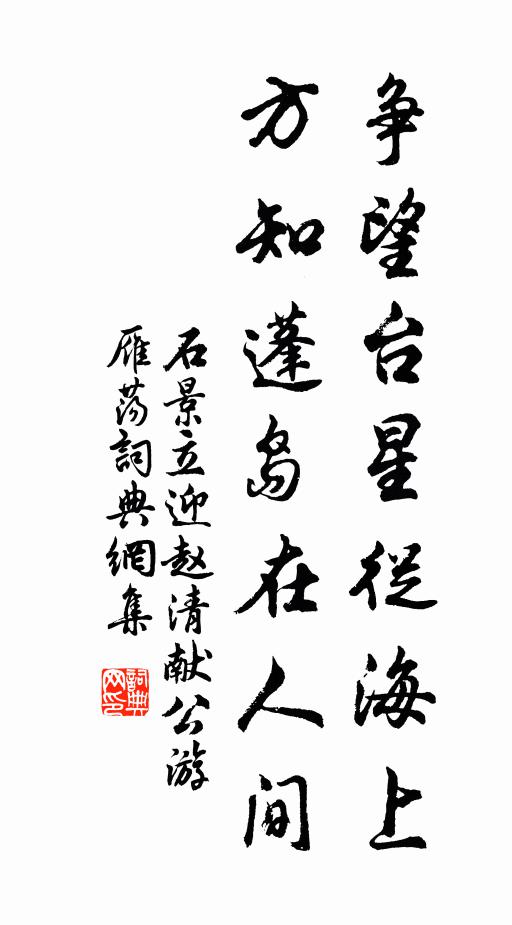 争望台星從海上
方知蓬岛在人间
石景立迎赵清献公游
雁荡詞典網集
詞典网印